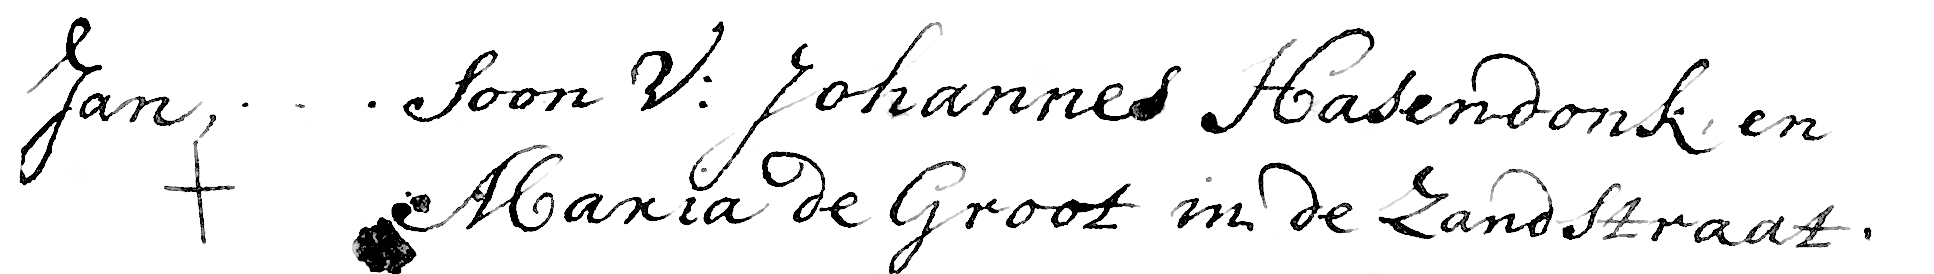 Jan, . . . Soon V: Johannes Hasendonk en
Maria de Groot in de Zandstraat.